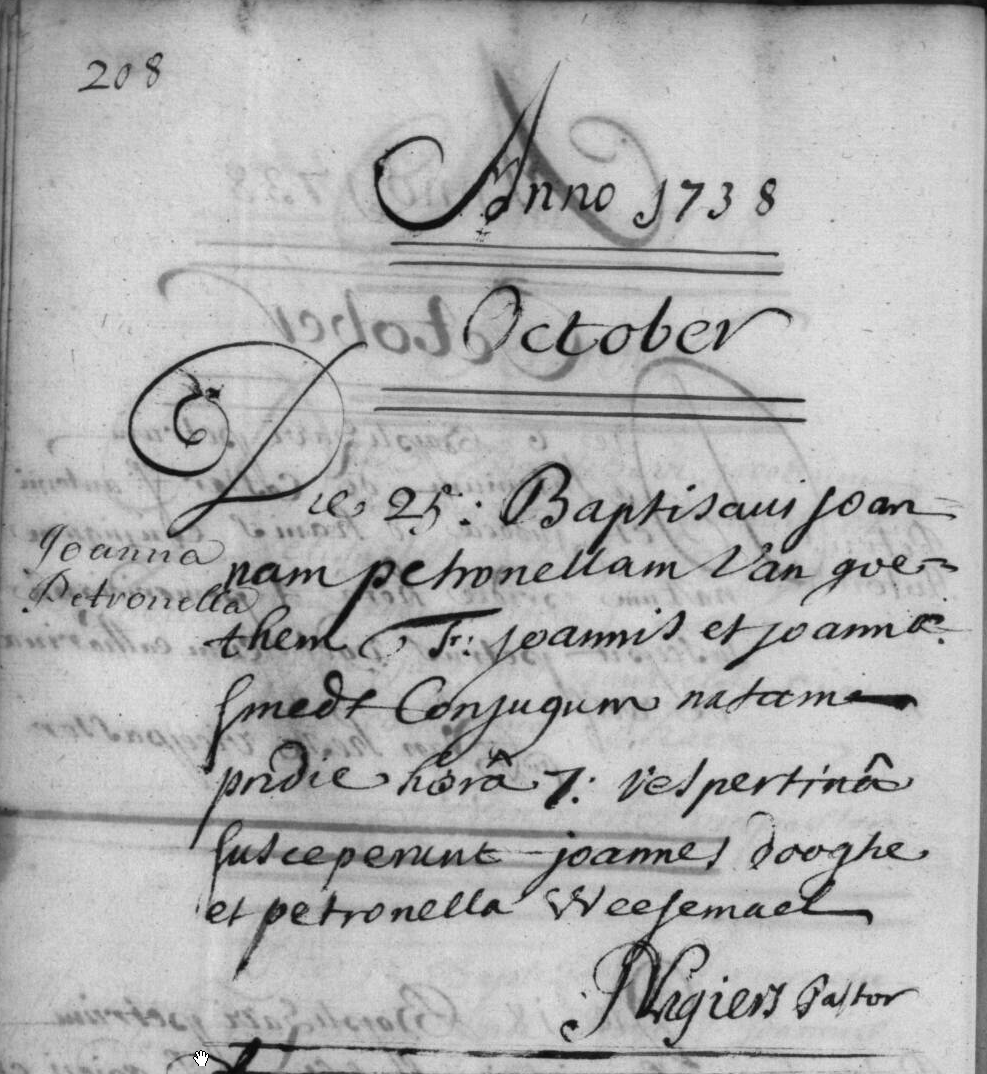 208
Anno 1738
October
Die 25: Baptisavi joan=
Joanna
nam petronellam Van goe=
Petronella
them Fr: joannis et joannæ
smedt Conjugum natam
pridie horâ 7: vespertinâ
susceperunt joannes dooghe
et petronella Weesemael
Pastor